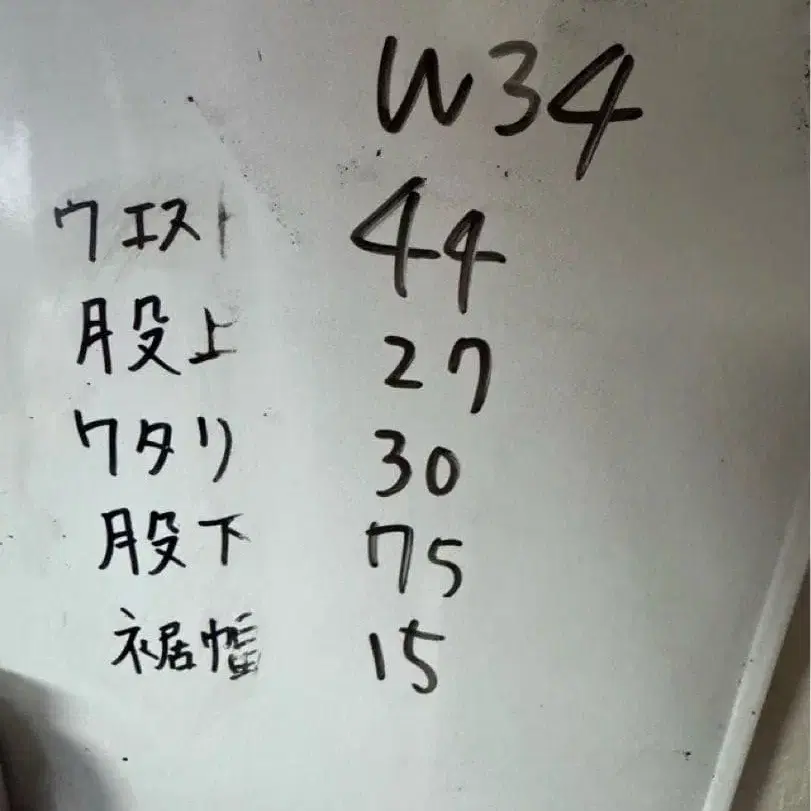 W34
ウエスト 44
股上 27
ワタリ 30
股下 75
裾幅 15